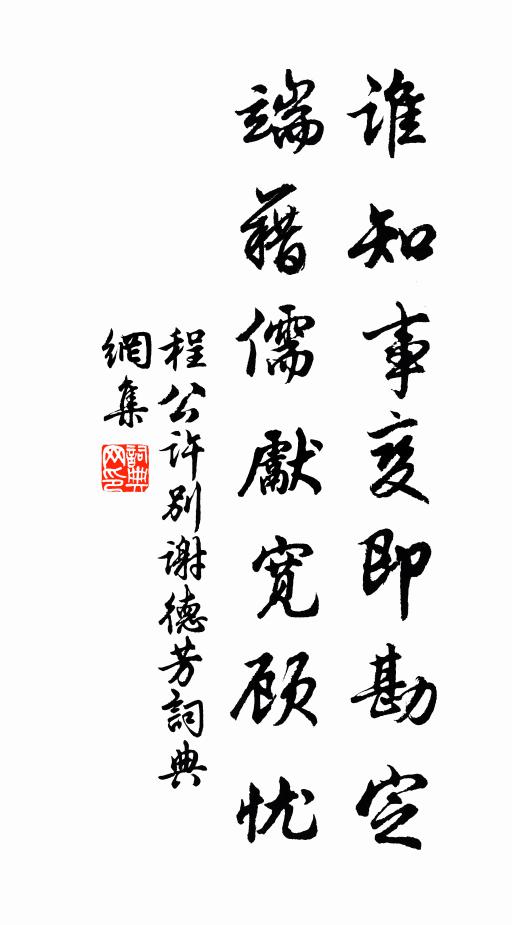 谁知事变即勘定
端藉儒献宽顾忧
程公许别谢德芳詞典
網集
詞典
网印